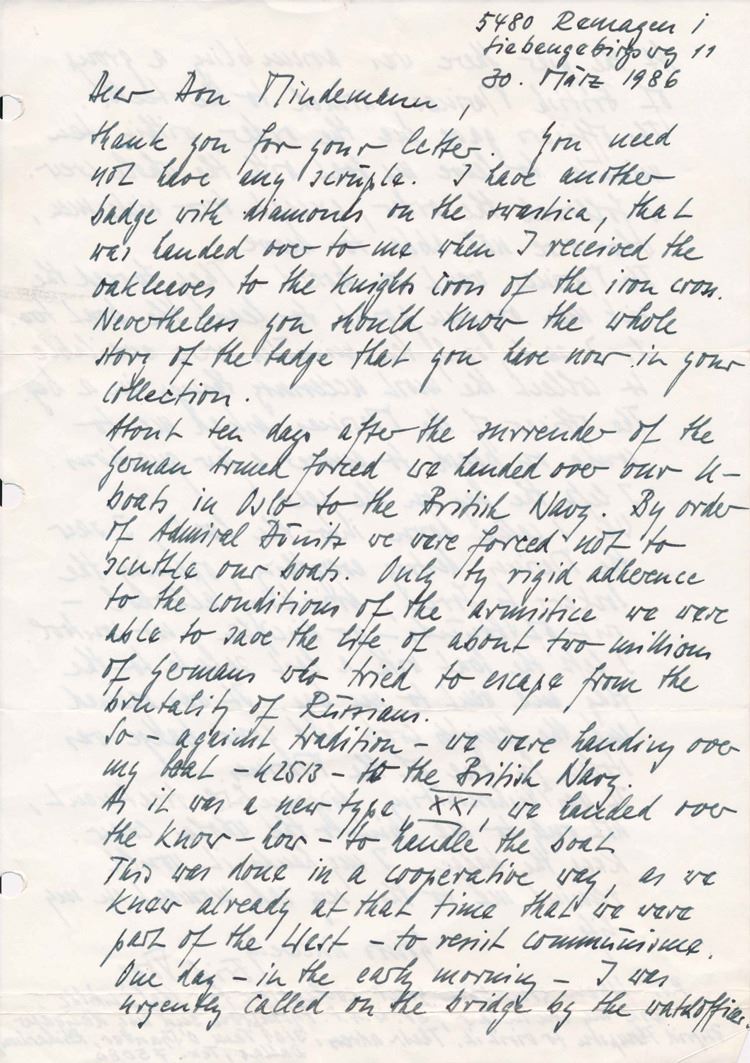 5480 Remagen 1
Siebengebirgsweg 11
30. März 1986
Dear Don Mindemann,
thank you for your letter. You need
not have any scruple. I have another
badge with diamonds on the swastica, that
was handed over to me when I received the
oakleaves to the Knights Cross of the iron cross.
Nevertheless you should know the whole
story of the badge that you have now in your
collection.
About ten days after the surrender of the
German Armed forced we handed over our U-
boats in Oslo to the British Navy. By order
of Admiral Dönitz we were forced not to
scuttle our boats. Only by rigid adherence
to the conditions of the armistice we were
able to save the life of about two millions
of Germans who tried to escape from the
brutality of Russians.
So - against tradition - we were handing over
my boat - U2513 - to the British Navy
As it was a new type, XXI, we handed over
the know-how - to handle the boat
This was done in a cooperative way, as we
knew already at that time that we were
part of the West - to resist communisme.
One day - in the early morning - I was
urgently called on the bridge by the watchofficer.